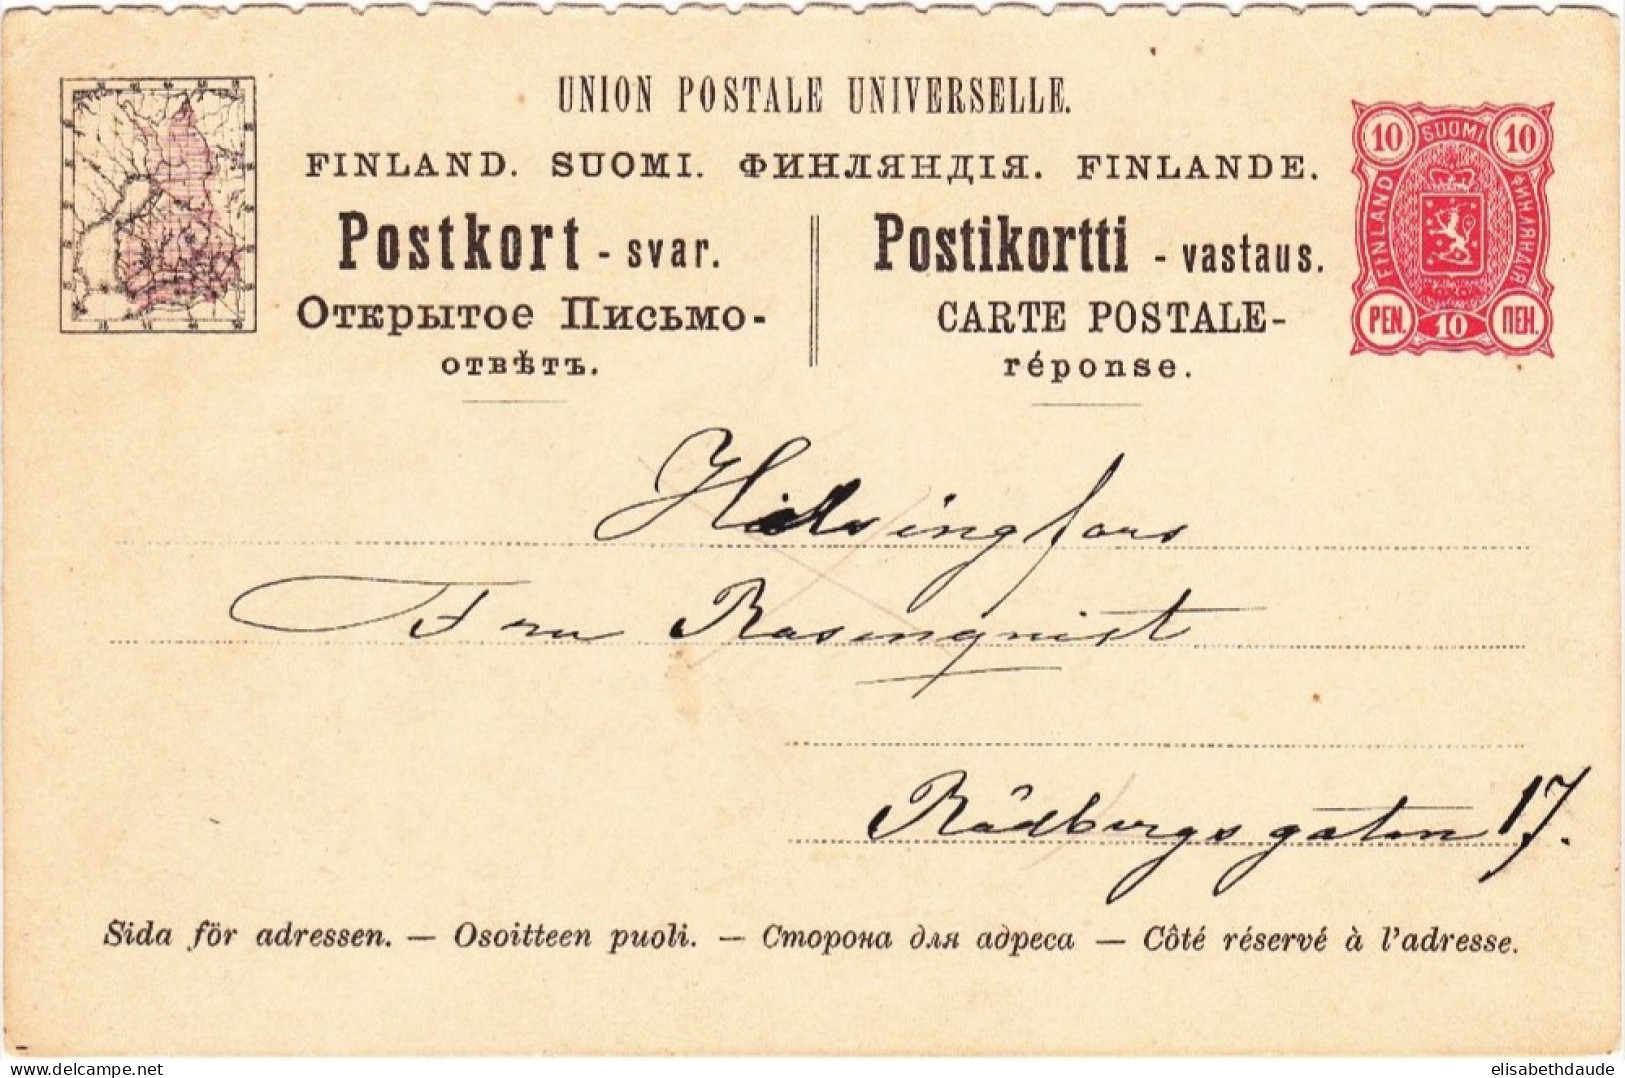 UNION POSTALE UNIVERSELLE.
FINLAND. SUOMI. ФИНЛЯНДІЯ. FINLANDE.
10 SUOMI 10
FINLAND ФИНЛЯНДІЯ
PEN. 10 ПЕН.
Postkort - svar.
Открытое Письмо-
отвѣтъ.
Postikortti - vastaus.
CARTE POSTALE-
réponse.
Helsingfors
Fru Rosenqvist
Rådbergsgatan 17.
Sida för adressen. — Osoitteen puoli. — Сторона для адреса — Côté réservé à l'adresse.
elisabethdaude